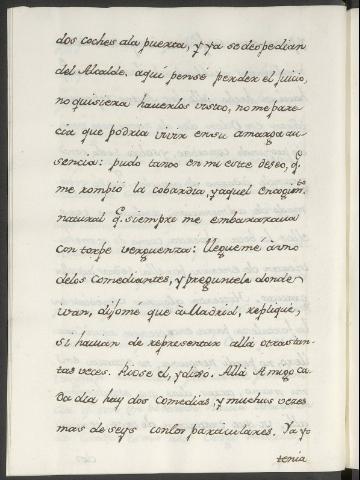 dos coches ala puerta, y ya se despedian
del Alcalde. aquí pensé perder el juicio,
no quisiera hauerlos visto, no me pare-
cia que podria vivir en su amarga au-
sencia: pudo tanto en mi este deseo, q.
me rompió la cobardia, y aquel encogim.to
natural q. siempre me embarazaua
con torpe verguenza: Llegueme à vno
delos Comediantes, y preguntele donde
ivan, dijomé que à Madrid, repliquè,
si hauian de representar allà otras tan-
tas veces. Riose el, y dixo. Allà Amigo ca-
da dia hay dos comedias, y muchas vezes
mas de seys conlos particulares. Ya yo
tenia